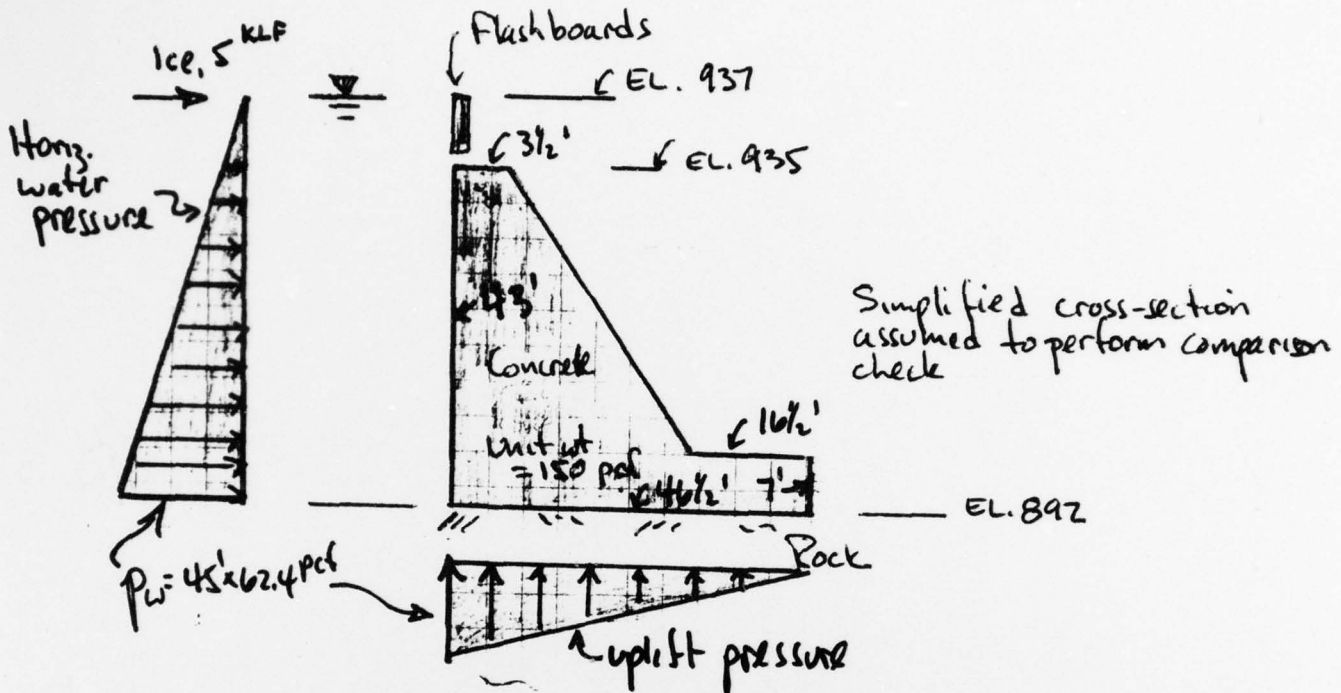 Flashboards
Ice, 5 KLF
EL. 937
3½'
EL. 935
Horiz.
water
pressure
43'
Simplified cross-section
assumed to perform comparison
check
Concrete
16½'
Unit wt
= 150 pcf
46½'
7'
EL. 892
Rock
Pw = 45' x 62.4 pcf
uplift pressure